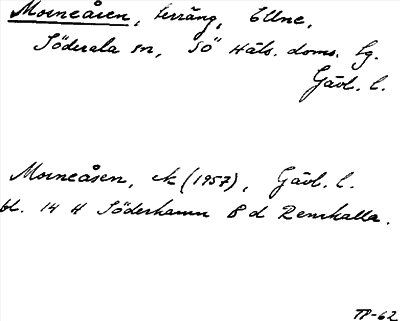 Morneåsen, terräng, Ellne,
Söderala sn, SÖ Häls. doms. tg.
Gävl. l.
Morneåsen, ek (1957), Gävl. l.
bl. 14 H Söderhamn 8 d Renskalla.
TP-62